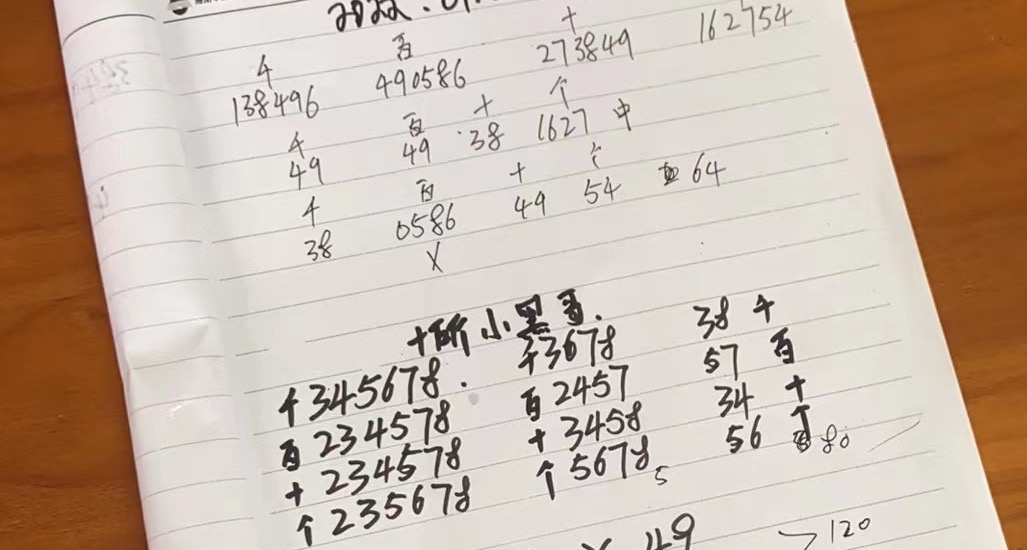 2022.01.
千 百 十
138496 490586 273849 162754
千 百 十 个
49 49 38 1627 中
千 百 十 个
38 0586 49 54 64
X
十所小黑哥.
千345678. 千3678 38 千
百234578 百2457 57 百
十234578 十3458 34 十
个235678 个5678 56 个
5 80
X 49 120